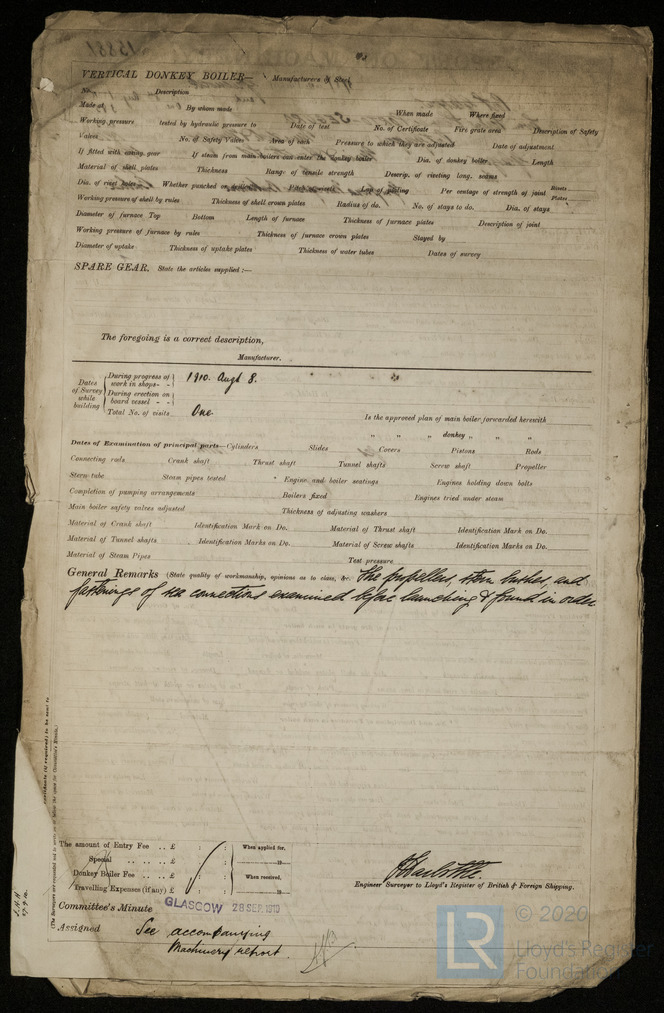 VERTICAL DONKEY BOILER— Manufacturers of Steel
No. Description
Made at By whom made When made Where fixed
Working pressure tested by hydraulic pressure to Date of test No. of Certificate Fire grate area Description of Safety
Valves No. of Safety Valves Area of each Pressure to which they are adjusted Date of adjustment
If fitted with easing gear If steam from main boilers can enter the donkey boiler Dia. of donkey boiler Length
Material of shell plates Thickness Range of tensile strength Descrip. of riveting long. seams
Dia. of rivet holes Whether punched or Pitch of rivets Lap of plating Per centage of strength of joint Rivets Plates
Working pressure of shell by rules Thickness of shell crown plates Radius of do. No. of stays to do. Dia. of stays
Diameter of furnace Top Bottom Length of furnace Thickness of furnace plates Description of joint
Working pressure of furnace by rules Thickness of furnace crown plates Stayed by
Diameter of uptake Thickness of uptake plates Thickness of water tubes Dates of survey
SPARE GEAR. State the articles supplied:—
The foregoing is a correct description,
Manufacturer.
Dates of Survey while building
During progress of work in shops - - 1910. Augt 8.
During erection on board vessel - -
Total No. of visits One
Is the approved plan of main boiler forwarded herewith
" " " donkey " " "
Dates of Examination of principal parts—Cylinders Slides Covers Pistons Rods
Connecting rods Crank shaft Thrust shaft Tunnel shafts Screw shaft Propeller
Stern tube Steam pipes tested Engine and boiler seatings Engines holding down bolts
Completion of pumping arrangements Boilers fixed Engines tried under steam
Main boiler safety valves adjusted Thickness of adjusting washers
Material of Crank shaft Identification Mark on Do. Material of Thrust shaft Identification Mark on Do.
Material of Tunnel shafts Identification Marks on Do. Material of Screw shafts Identification Marks on Do.
Material of Steam Pipes Test pressure
General Remarks (State quality of workmanship, opinions as to class, &c. The propellers, stern bushes, and
fastenings of sea connections examined before launching & found in order
The amount of Entry Fee .. £ : : When applied for,
Special .. .. .. £ : :
Donkey Boiler Fee .. .. £ : : When received,
Travelling Expenses (if any) £ : :
Engineer Surveyor to Lloyd's Register of British & Foreign Shipping.
Committee's Minute GLASGOW 28 SEP. 1910
Assigned See accompanying
Machinery report.
LR © 2020
Lloyd's Register
Foundation